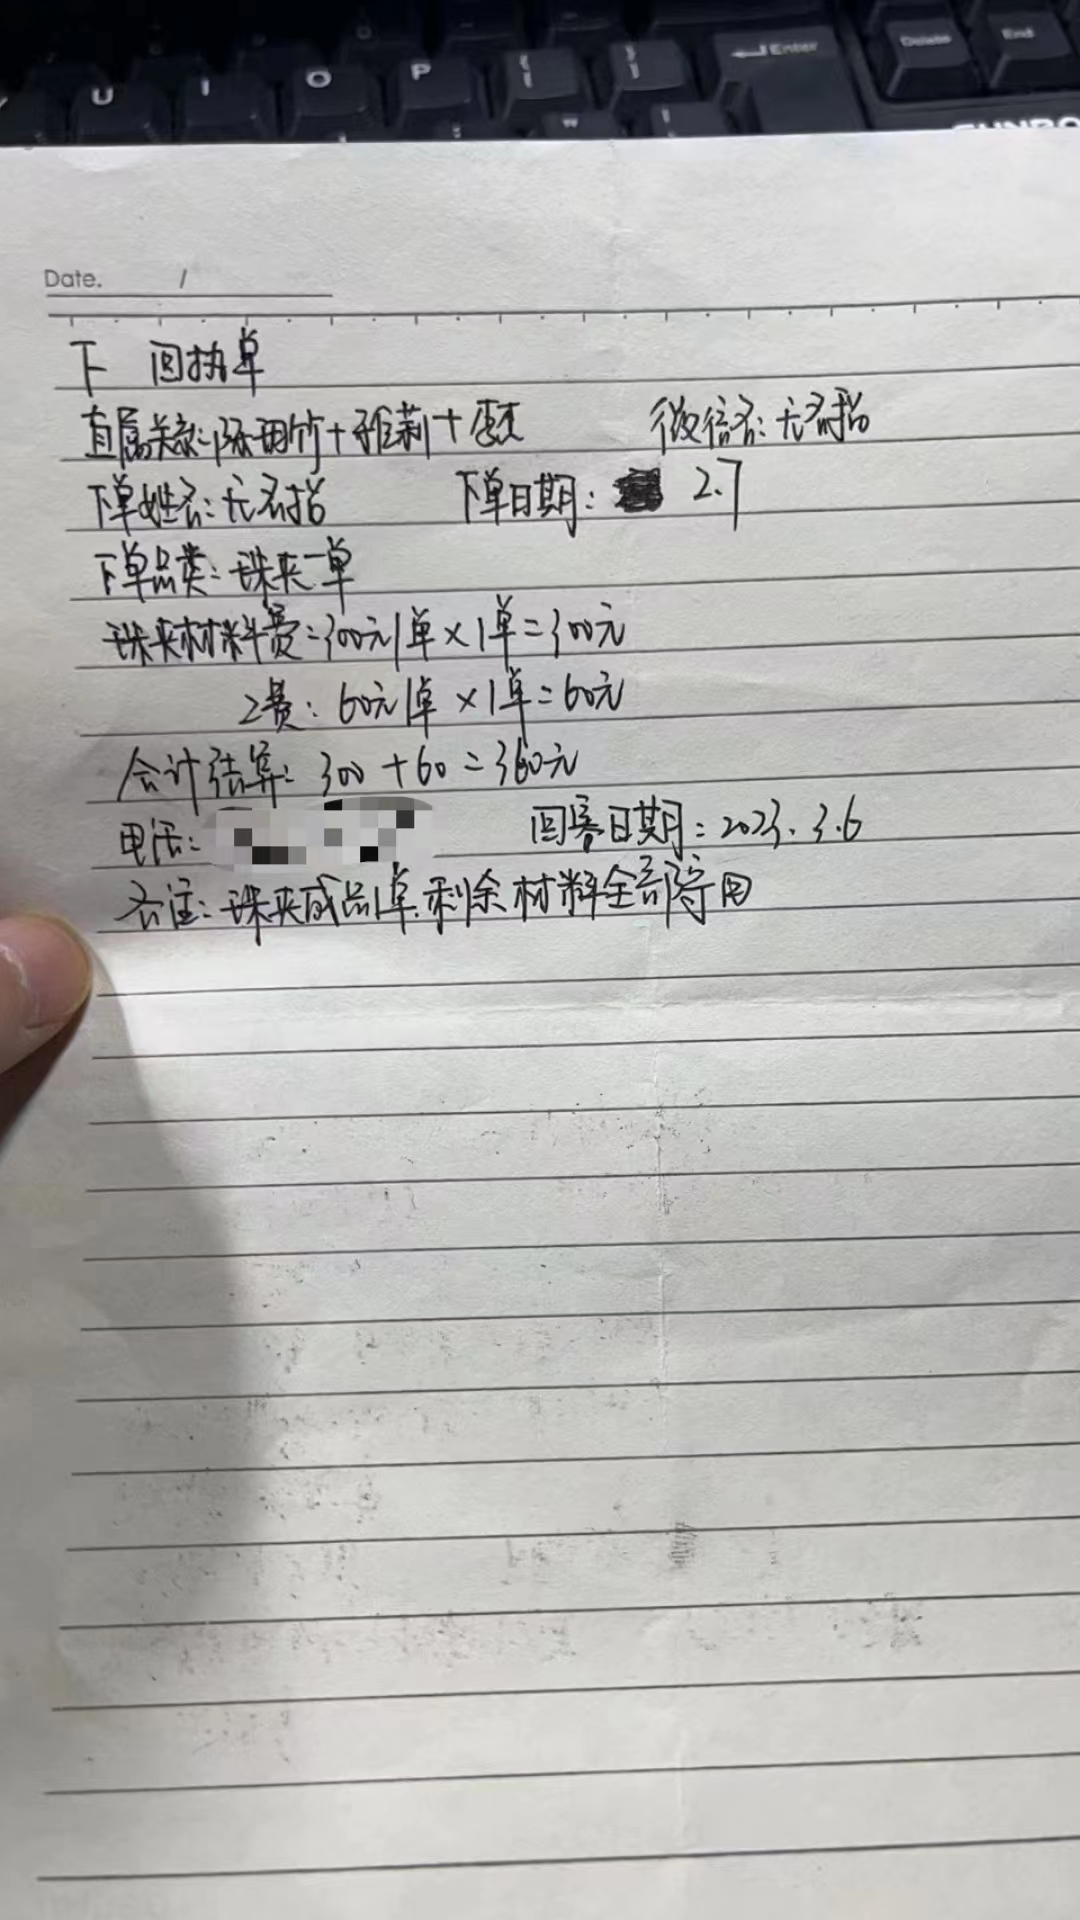 U I O P { [ } ] Enter Delete End
Date. /
下 回执单
直属关系: 陈雨竹+雅莉+ 微信名: 无名指
下单姓名: 无名指 下单日期: 2.7
下单品类: 珠夹一单
珠夹材料费: 300元1单×1单=300元
工费: 60元1单×1单=60元
合计结算: 300+60=360元
电话: 回寄日期: 2023.3.6
备注: 珠夹成品1单,剩余材料全部